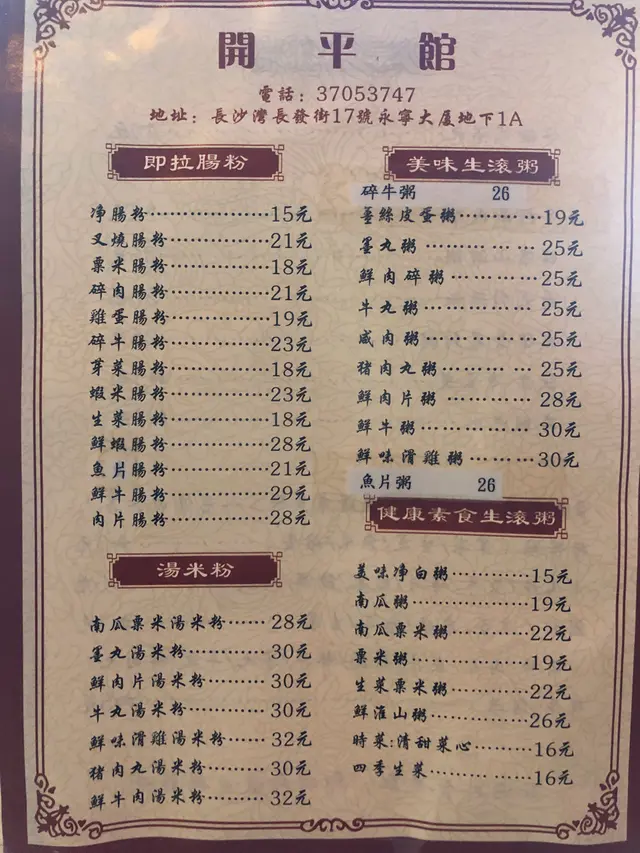 開平館
電話：37053747
地址：長沙灣長發街17號永寧大厦地下1A
即拉腸粉
净腸粉………………15元
叉燒腸粉……………21元
粟米腸粉……………18元
碎肉腸粉……………21元
雞蛋腸粉……………19元
碎牛腸粉……………23元
芽菜腸粉……………18元
蝦米腸粉……………23元
生菜腸粉……………18元
鮮蝦腸粉……………28元
魚片腸粉……………21元
鮮牛腸粉……………29元
肉片腸粉……………28元
湯米粉
南瓜粟米湯米粉……28元
墨丸湯米粉…………30元
鮮肉片湯米粉………30元
牛丸湯米粉…………30元
鮮味滑雞湯米粉……32元
猪肉丸湯米粉………30元
鮮牛肉湯米粉………32元
美味生滚粥
碎牛粥 26
薑絲皮蛋粥…………19元
墨丸粥………………25元
鮮肉碎粥……………25元
牛丸粥………………25元
咸肉粥………………25元
猪肉丸粥……………25元
鮮肉片粥……………28元
鮮牛粥………………30元
鮮味滑雞粥…………30元
魚片粥 26
健康素食生滚粥
美味净白粥…………15元
南瓜粥………………19元
南瓜粟米粥…………22元
粟米粥………………19元
生菜粟米粥…………22元
鮮淮山粥……………26元
時菜:清甜菜心………16元
四季生菜……………16元